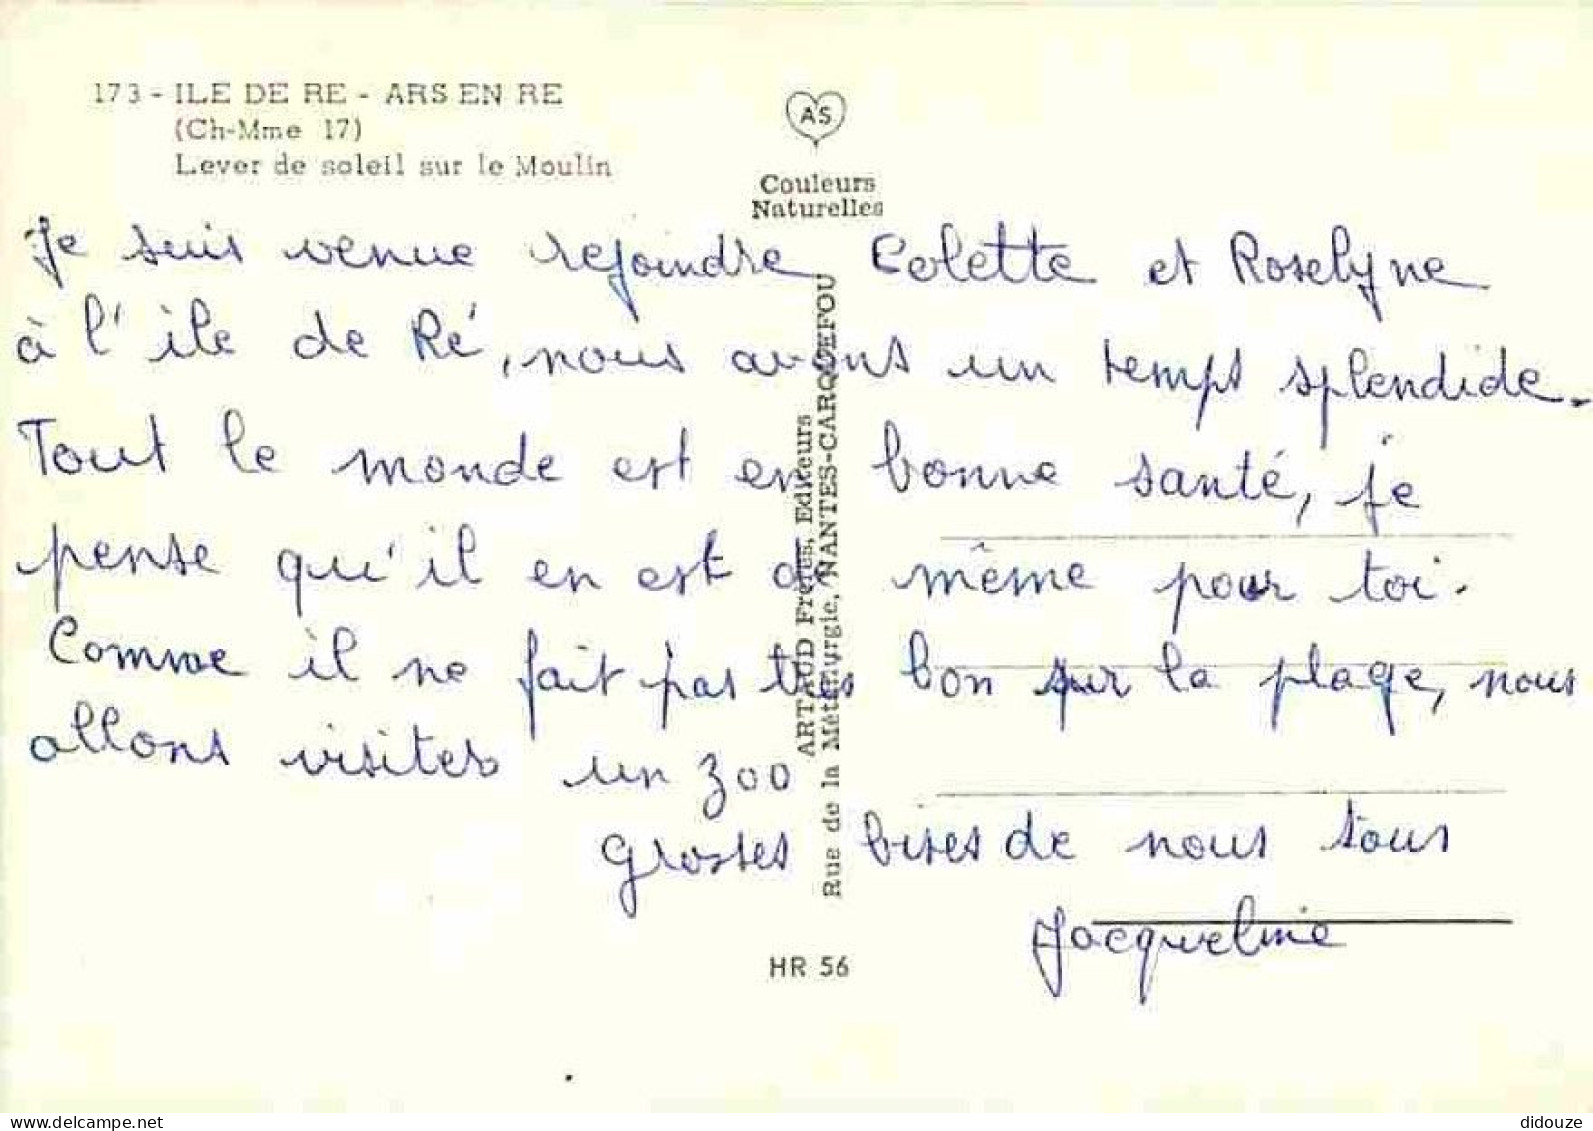 173 - ILE DE RE - ARS EN RE
(Ch-Mme 17)
Lever de soleil sur le Moulin
AS
Couleurs
Naturelles
Je suis venue rejoindre Colette et Roselyne
à l'île de Ré, nous avons un temps splendide.
Tout le monde est en bonne santé, je
pense qu'il en est de même pour toi.
Comme il ne fait pas très bon sur la plage, nous
allons visiter un zoo
Grosses bises de nous tous
Jacqueline
ARTAUD Frères, Editeurs
Rue de la Métallurgie, NANTES-CARQUEFOU
HR 56
delcampe.net
didouze